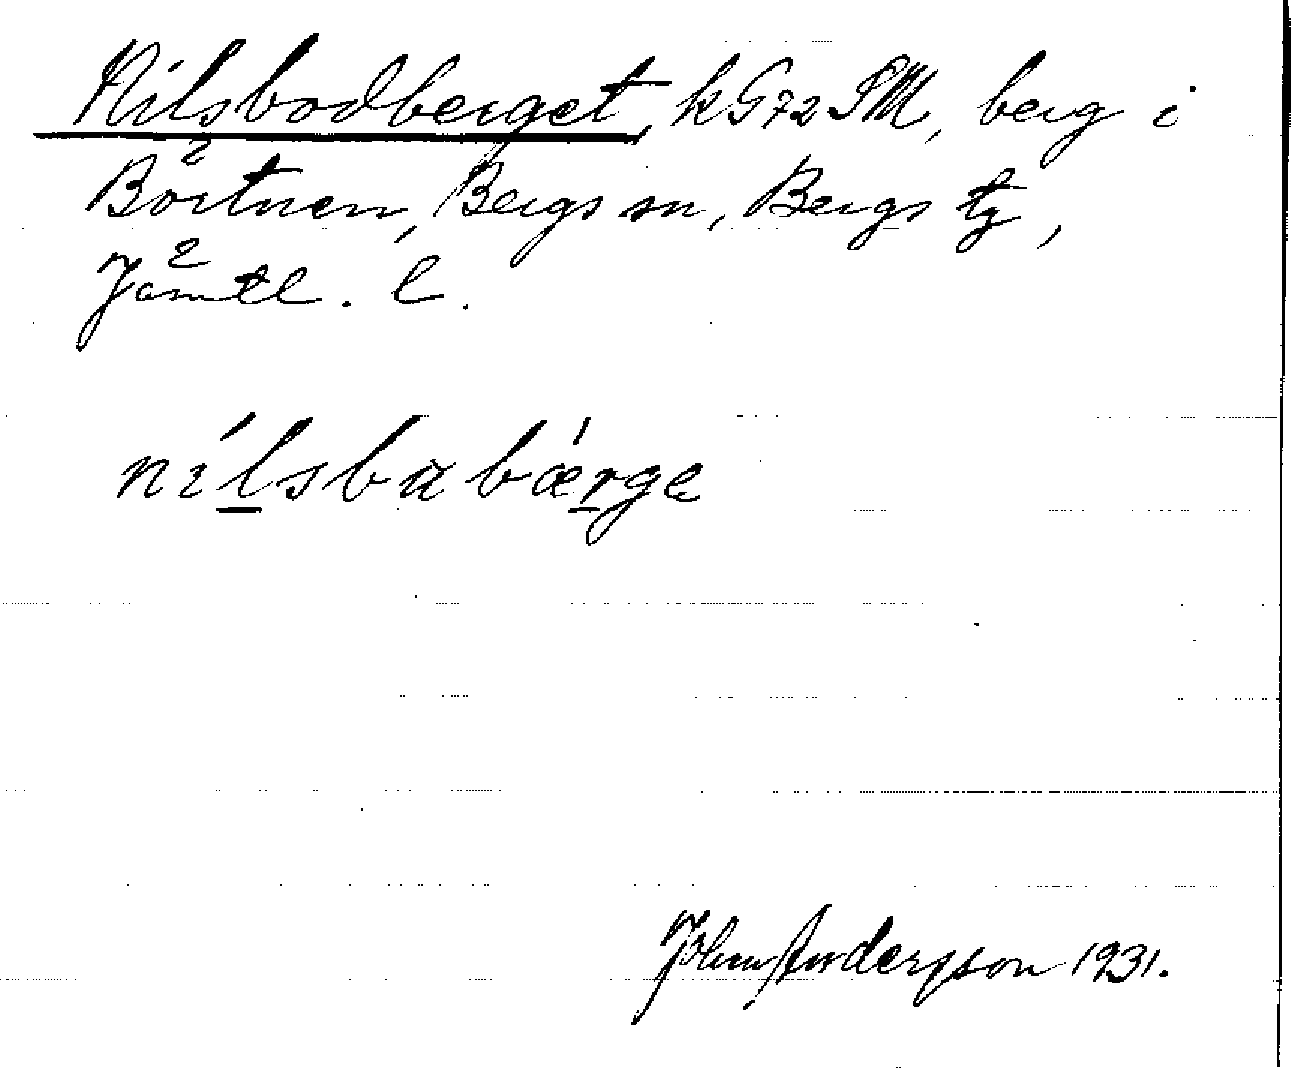 Nilsbodberget, k G72 SM, berg i
Börtnen, Bergs sn, Bergs tg,
Jämtl. l.
nílsbabǽrge
John Andersson 1931.